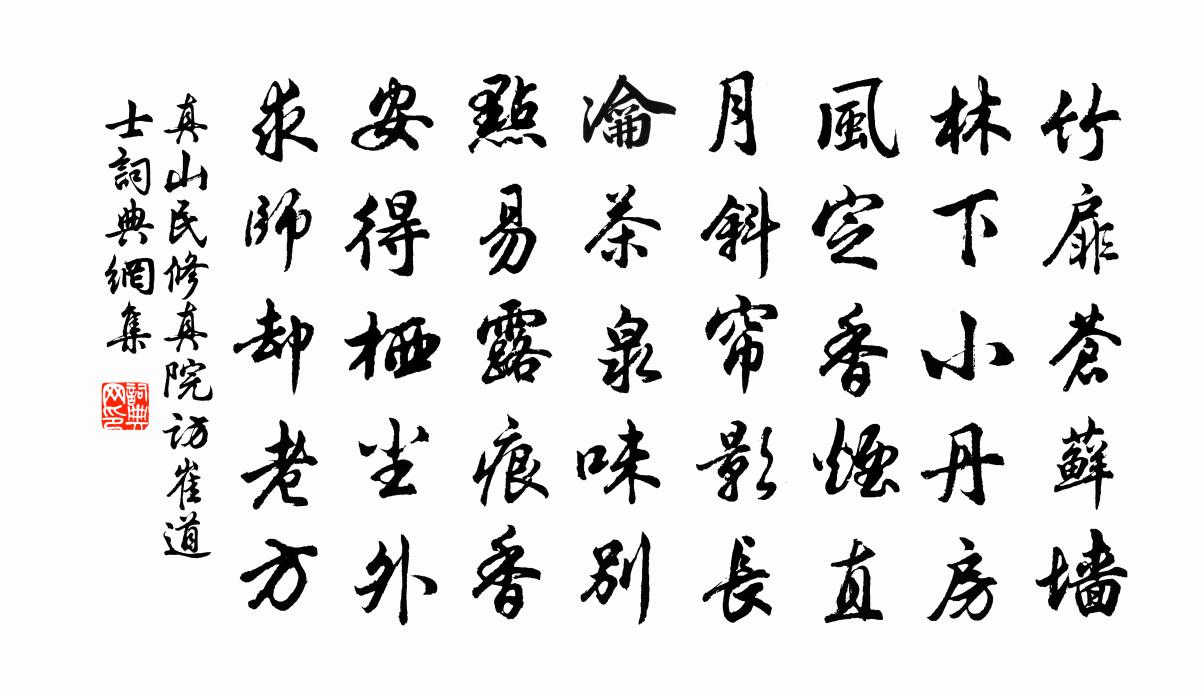 竹扉蒼蘚墻
林下小丹房
風定香煙直
月斜帘影長
瀹茶泉味別
點易露痕香
安得栖尘外
求師却老方
真山民修真院訪崔道
士詞典網集
詞典网印